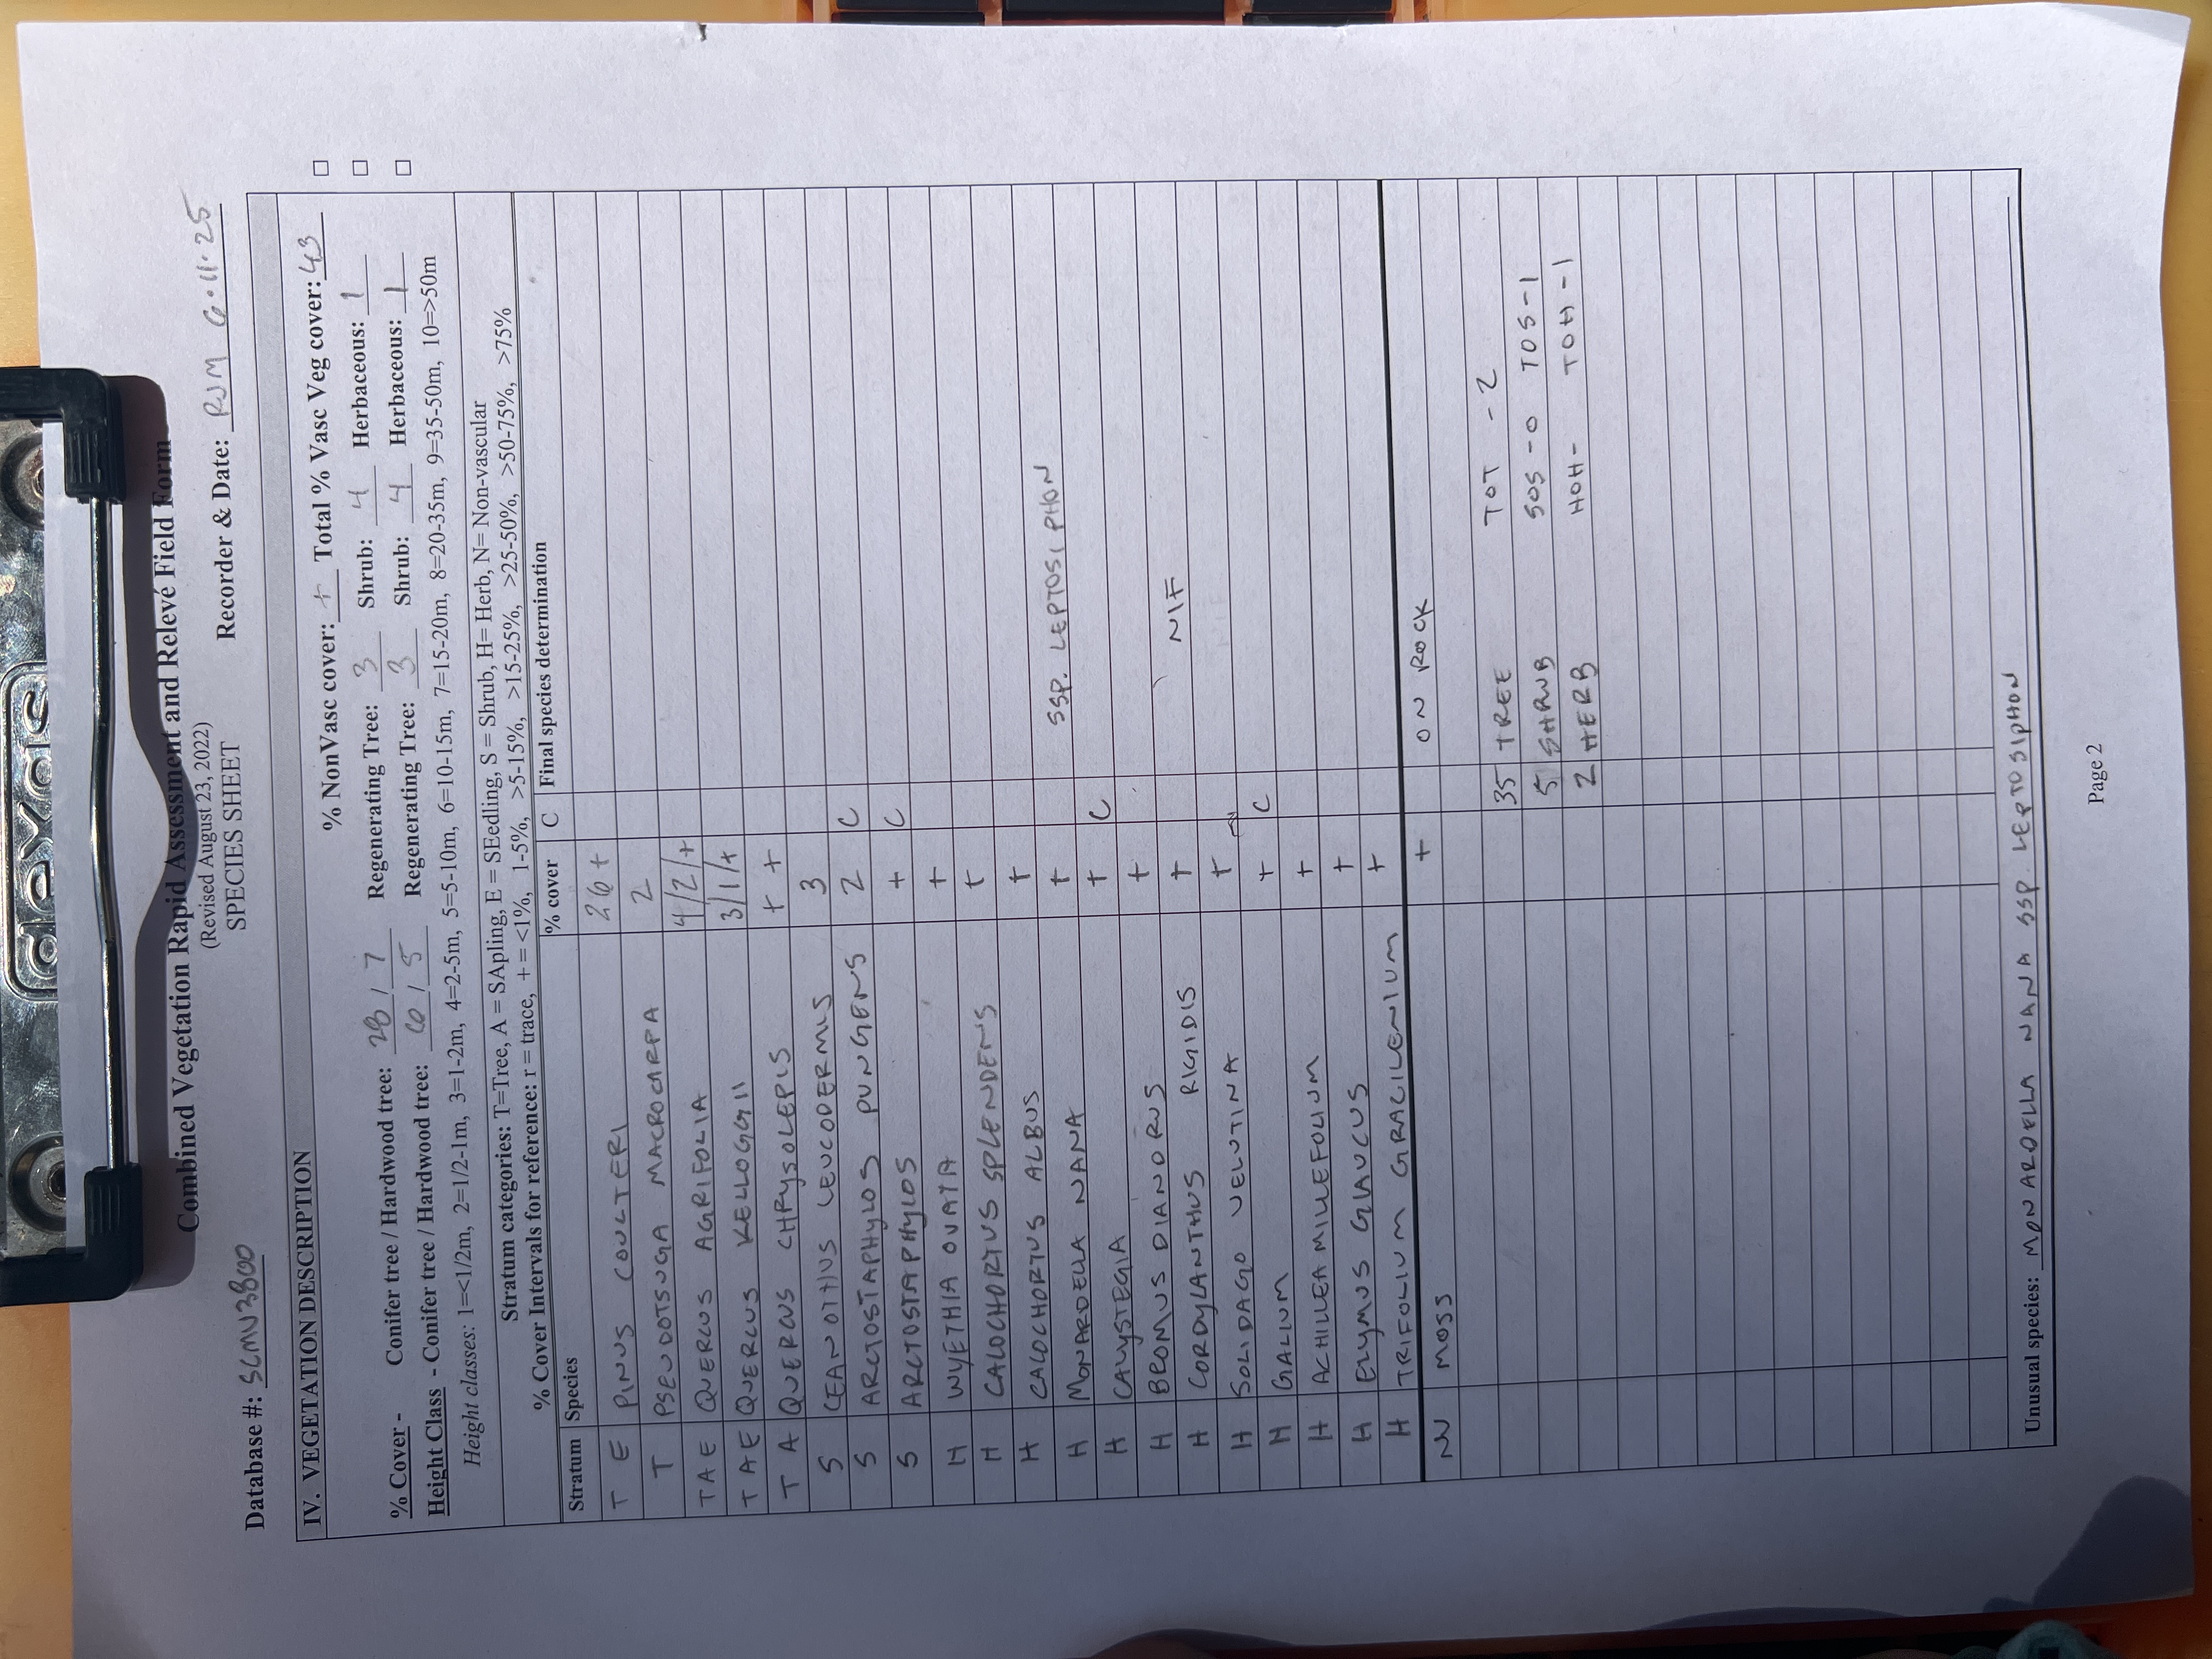 dexas
Combined Vegetation Rapid Assessment and Relevé Field Form
(Revised August 23, 2022)
SPECIES SHEET
Database #: SCMV3800 Recorder & Date: RJM 6.11.25
IV. VEGETATION DESCRIPTION
% NonVasc cover: + Total % Vasc Veg cover: 43
% Cover - Conifer tree / Hardwood tree: 28 / 7 Regenerating Tree: 3 Shrub: 4 Herbaceous: 1
Height Class - Conifer tree / Hardwood tree: 6 / 5 Regenerating Tree: 3 Shrub: 4 Herbaceous: 1
Height classes: 1=<1/2m, 2=1/2-1m, 3=1-2m, 4=2-5m, 5=5-10m, 6=10-15m, 7=15-20m, 8=20-35m, 9=35-50m, 10=>50m
Stratum categories: T=Tree, A = SApling, E = SEedling, S = Shrub, H= Herb, N= Non-vascular
% Cover Intervals for reference: r = trace, + = <1%, 1-5%, >5-15%, >15-25%, >25-50%, >50-75%, >75%
Stratum Species % cover C Final species determination
T E PINUS COULTERI 26 +
T PSEUDOTSUGA MACROCARPA 2
T A E QUERCUS AGRIFOLIA 4/2/+
T A E QUERCUS KELLOGGII 3/1/+
T A QUERCUS CHRYSOLEPIS + +
S CEANOTHUS LEUCODERMIS 3
S ARCTOSTAPHYLOS PUNGENS 2 C
S ARCTOSTAPHYLOS + C
H WYETHIA OVATA +
H CALOCHORTUS SPLENDENS +
H CALOCHORTUS ALBUS +
H MONARDELLA NANA + SSP. LEPTOSIPHON
H CALYSTEGIA + C
H BROMUS DIANDRUS +
H CORDYLANTHUS RIGIDIS + NIF
H SOLIDAGO VELUTINA +
H GALIUM + C
H ACHILLEA MILLEFOLIUM +
H ELYMUS GLAUCUS +
H TRIFOLIUM GRACILENIUM +
N MOSS + ON ROCK
35 TREE TOT - 2
5 SHRUB SOS - 0 TOS - 1
2 HERB HOH - TOH - 1
Unusual species: MONARDELLA NANA SSP. LEPTOSIPHON
Page 2